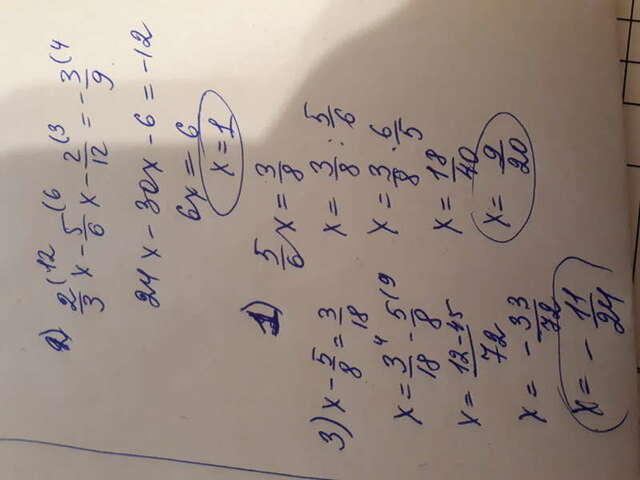 2) 2/3 (12 x - 5/6 (6 x - 2/12 (3 = - 3/9 (4
24x - 30x - 6 = -12
6x = 6
x = 1
1) 5/6 x = 3/8
x = 3/8 : 5/6
x = 3/8 · 6/5
x = 18/40
x = 9/20
3) x - 5/8 = 3/18
x = 3/18 4 - 5/8 (9
x = 12-45/72
x = - 33/72
x = - 11/24